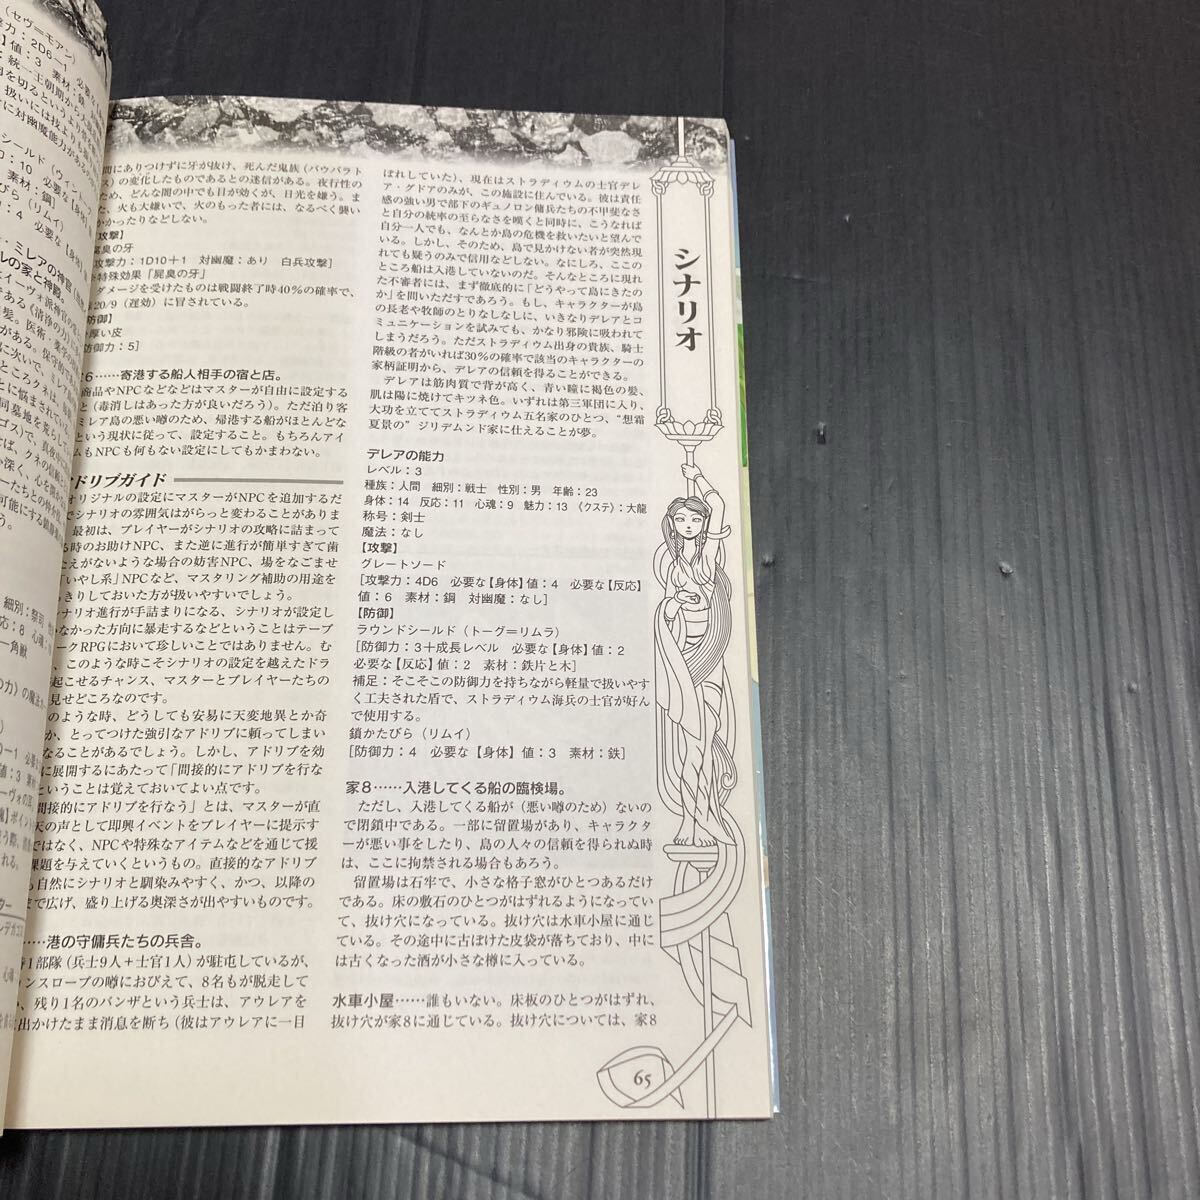 (セヴ=モアン)
撃力:2D6-1
値:3 素材:鏡
統一王朝期から
シールド(ウィン
ミレアの神官
ルの家と神殿。
間にありつけずに牙が抜け、死んだ鬼族(バウバラト
ス)の変化したものであるとの迷信がある。夜行性の
ため、どんな闇の中でも目が効くが、日光を嫌う。ま
た、火も大嫌いで、火のもった者には、なるべく襲い
かかったりなどしない。
攻撃】
屍臭の牙
攻撃力:1D10+1 対幽魔:あり 白兵攻撃]
特殊効果「屍臭の牙」
ダメージを受けたものは戦闘終了時40%の確率で、
20/9(遅効)に冒されている。
防御】
厚い皮
防御力:5]
6……寄港する船人相手の宿と店。
商品やNPCなどなどはマスターが自由に設定する
と(毒消しはあった方が良いだろう)。ただ泊り客
ミレア島の悪い噂のため、帰港する船がほとんどな
という現状に従って、設定すること。もちろんアイ
ムもNPCも何もない設定にしてもかまわない。
ドリブガイド
オリジナルの設定にマスターがNPCを追加するだ
でシナリオの雰囲気はがらっと変わることがありま
最初は、プレイヤーがシナリオの攻略に詰まって
る時のお助けNPC、また逆に進行が簡単すぎて歯
たえがないような場合の妨害NPC、場をなごませ
「いやし系」NPCなど、マスタリング補助の用途を
っきりしておいた方が扱いやすいでしょう。
シナリオ進行が手詰まりになる、シナリオが設定し
いなかった方向に暴走するなどということはテーブ
ークRPGにおいて珍しいことではありません。む
、このような時こそシナリオの設定を越えたドラ
起こせるチャンス、マスターとプレイヤーたちの
見せどころなのです。
のような時、どうしても安易に天変地異とか奇
か、とってつけた強引なアドリブに頼ってしまい
なることがあるでしょう。しかし、アドリブを効
に展開するにあたって「間接的にアドリブを行な
ということは覚えておいてよい点です。
間接的にアドリブを行なう」とは、マスターが直
天の声として即興イベントをプレイヤーに提示す
ではなく、NPCや特殊なアイテムなどを通じて援
課題を与えていくというもの。直接的なアドリブ
も自然にシナリオと馴染みやすく、かつ、以降の
まで広げ、盛り上げる奥深さが出やすいものです。
……港の守傭兵たちの兵舎。
1部隊(兵士9人+士官1人)が駐屯しているが、
ンスロープの噂におびえて、8名もが脱走して
、残り1名のバンザという兵士は、アウレアを
に出かけたまま消息を断ち(彼はアウレアに一目
ぼれしていた)、現在はストラディウムの士官デレ
ア・グドアのみが、この施設に住んでいる。彼は責任
感の強い男で部下のギュノロン傭兵たちの不甲斐なさ
と自分の統率の至らなさを嘆くと同時に、こうなれば
自分一人でも、なんとか島の危機を救いたいと望んで
いる。しかし、そのため、島で見かけない者が突然現
れても疑うのみで信用などしない。なにしろ、ここの
ところ船は入港していないのだ。そんなところに現れ
た不審者には、まず徹底的に「どうやって島にきたの
か」を問いただすであろう。もし、キャラクターが島
の長老や牧師のとりなしなしに、いきなりデレアとコ
ミュニケーションを試みても、かなり邪険に吸われて
しまうだろう。ただストラディウム出身の貴族、騎士
階級の者がいれば30%の確率で該当のキャラクターの
家柄証明から、デレアの信頼を得ることができる。
デレアは筋肉質で背が高く、青い瞳に褐色の髪、
肌は陽に焼けてキツネ色。いずれは第三軍団に入り、
大功を立ててストラディウム五名家のひとつ、“想霜
夏景の”ジリデムンド家に仕えることが夢。
デレアの能力
レベル:3
種族:人間 細別:戦士 性別:男 年齢:23
身体:14 反応:11 心魂:9 魅力:13 《クステ》:大龍
称号:剣士
魔法:なし
【攻撃】
グレートソード
[攻撃力:4D6 必要な【身体】値:4 必要な【反応】
値:6 素材:鋼 対幽魔:なし]
【防御】
ラウンドシールド(トーグ=リムラ)
[防御力:3+成長レベル 必要な【身体】値:2
必要な【反応】値:2 素材:鉄片と木]
補足:そこそこの防御力を持ちながら軽量で扱いやす
く工夫された盾で、ストラディウム海兵の士官が好ん
で使用する。
鎖かたびら(リムイ)
[防御力:4 必要な【身体】値:3 素材:鉄]
家8……入港してくる船の臨検場。
ただし、入港してくる船が(悪い噂のため)ないの
で閉鎖中である。一部に留置場があり、キャラクタ
ーが悪い事をしたり、島の人々の信頼を得られぬ時
は、ここに拘禁される場合もあろう。
留置場は石牢で、小さな格子窓がひとつあるだけ
である。床の敷石のひとつがはずれるようになってい
て、抜け穴になっている。抜け穴は水車小屋に通じ
ている。その途中に古ぼけた皮袋が落ちており、中に
は古くなった酒が小さな樽に入っている。
水車小屋……誰もいない。床板のひとつがはずれ、
抜け穴が家8に通じている。抜け穴については、家8
シナリオ
65